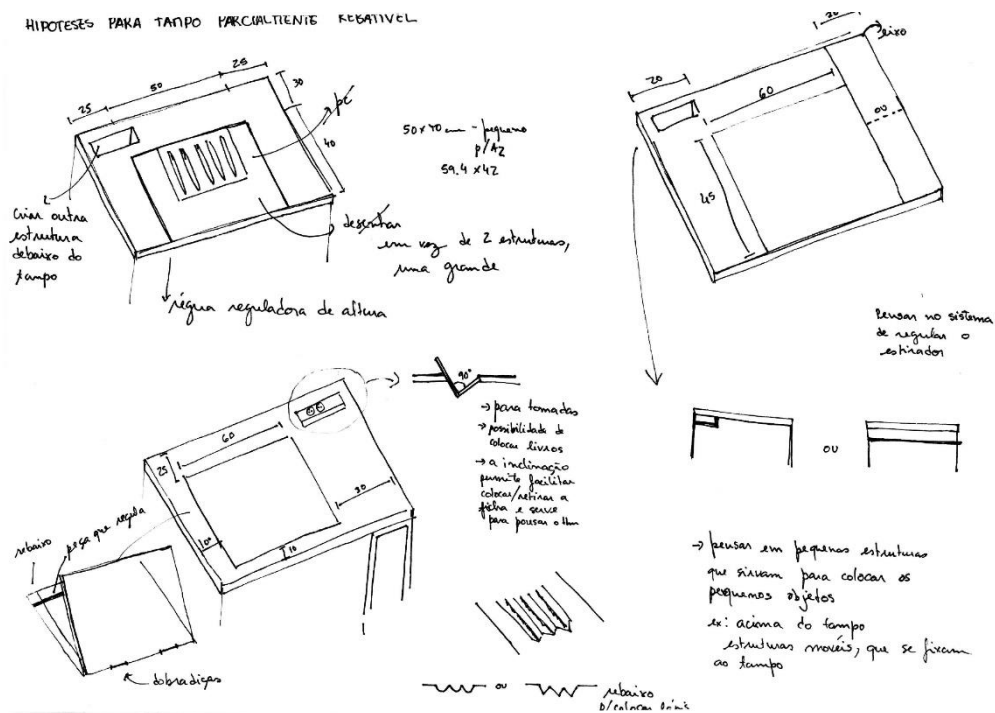 HIPOTESES PARA TAMPO PARCIALMENTE REBATIVEL
25
50
25
30
40
pc
50x70 cm - pequeno
p/A2
59.4 x 42
criar outra
estrutura
debaixo do
tampo
desenhar
em vez de 2 estruturas,
uma grande
régua reguladora de altura
20
20
eixo
60
ou
45
Pensar no sistema
de regular o
estirador
ou
60
25
30
10
10
rebaixo
peça que regula
dobradiças
90°
→ para tomadas
→ possibilidade de
colocar livros
→ a inclinação
permite facilitar
colocar/retirar a
ficha e serve
para pousar o
ou
rebaixo
p/colocar
→ pensar em pequenas estruturas
que sirvam para colocar os
pequenos objetos
ex: acima do tampo
estruturas moveis, que se fixam
ao tampo